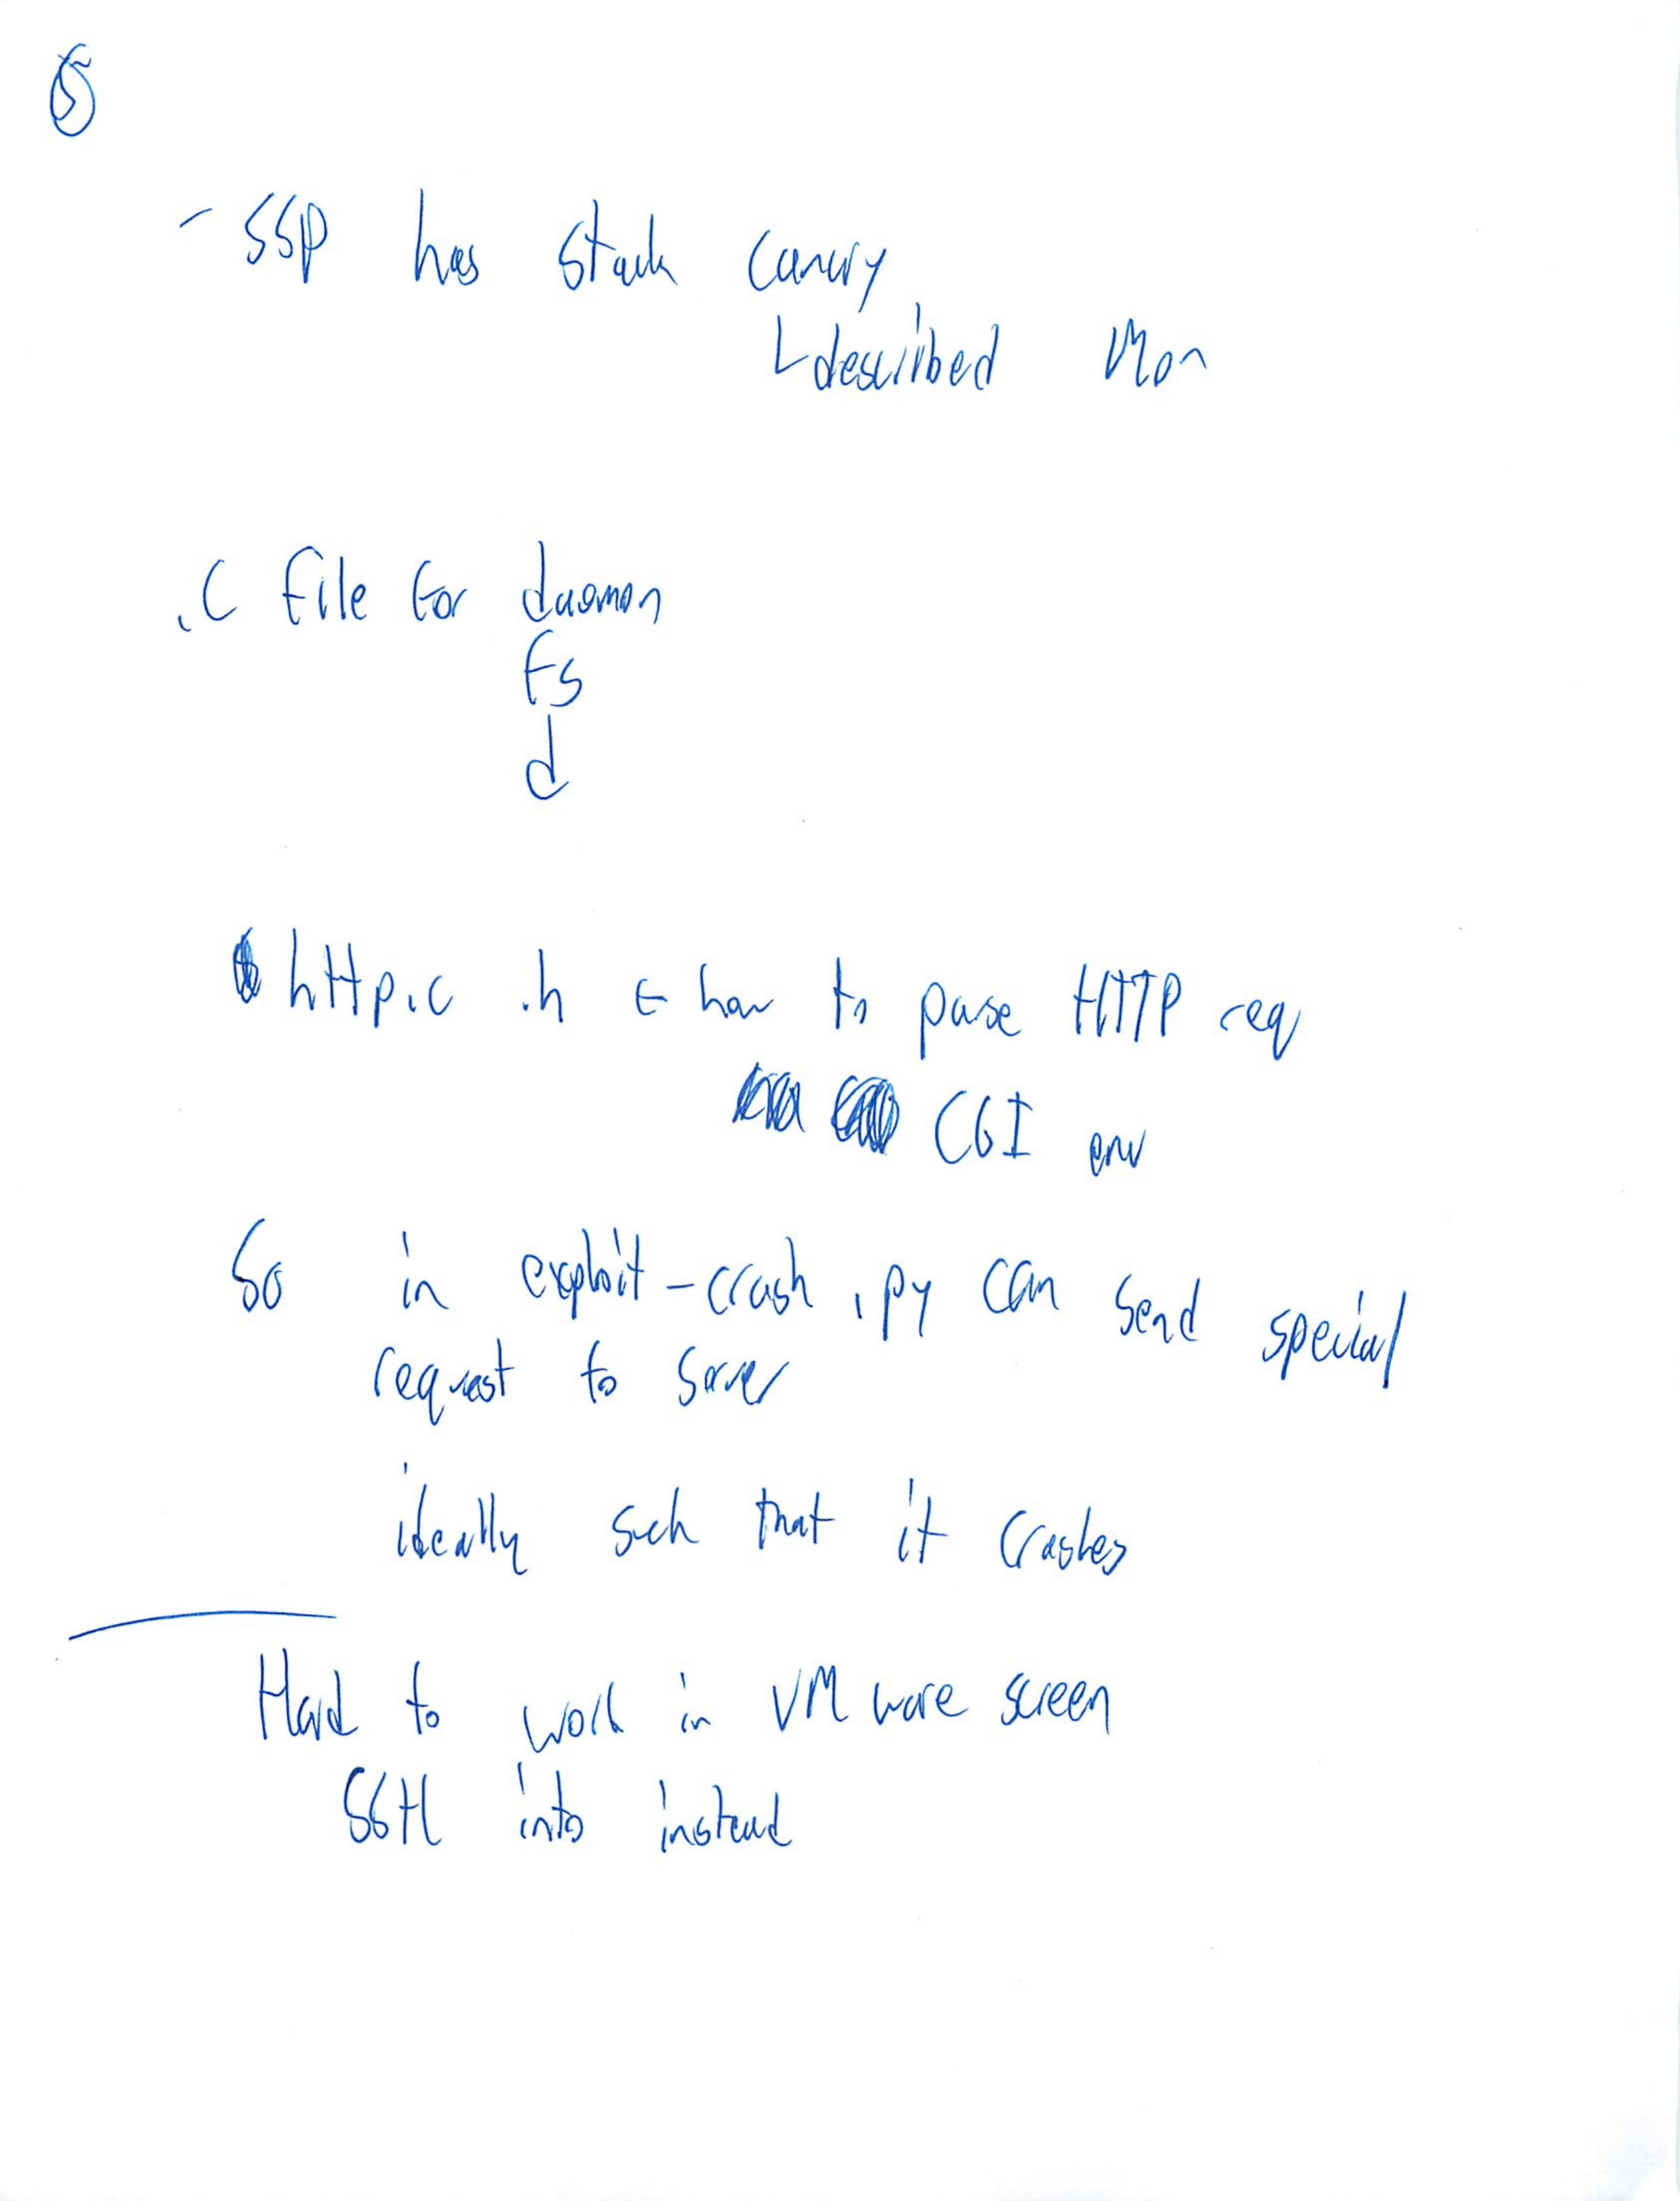 5
- SSP has stack canary
described Mon
.C file for daomon
fs
d
http.c .h ← how to parse HTTP req
CGI env
So in exploit-crash.py can send special
request to server
ideally such that it crashes
Hard to work in VMware screen
SSH into instead